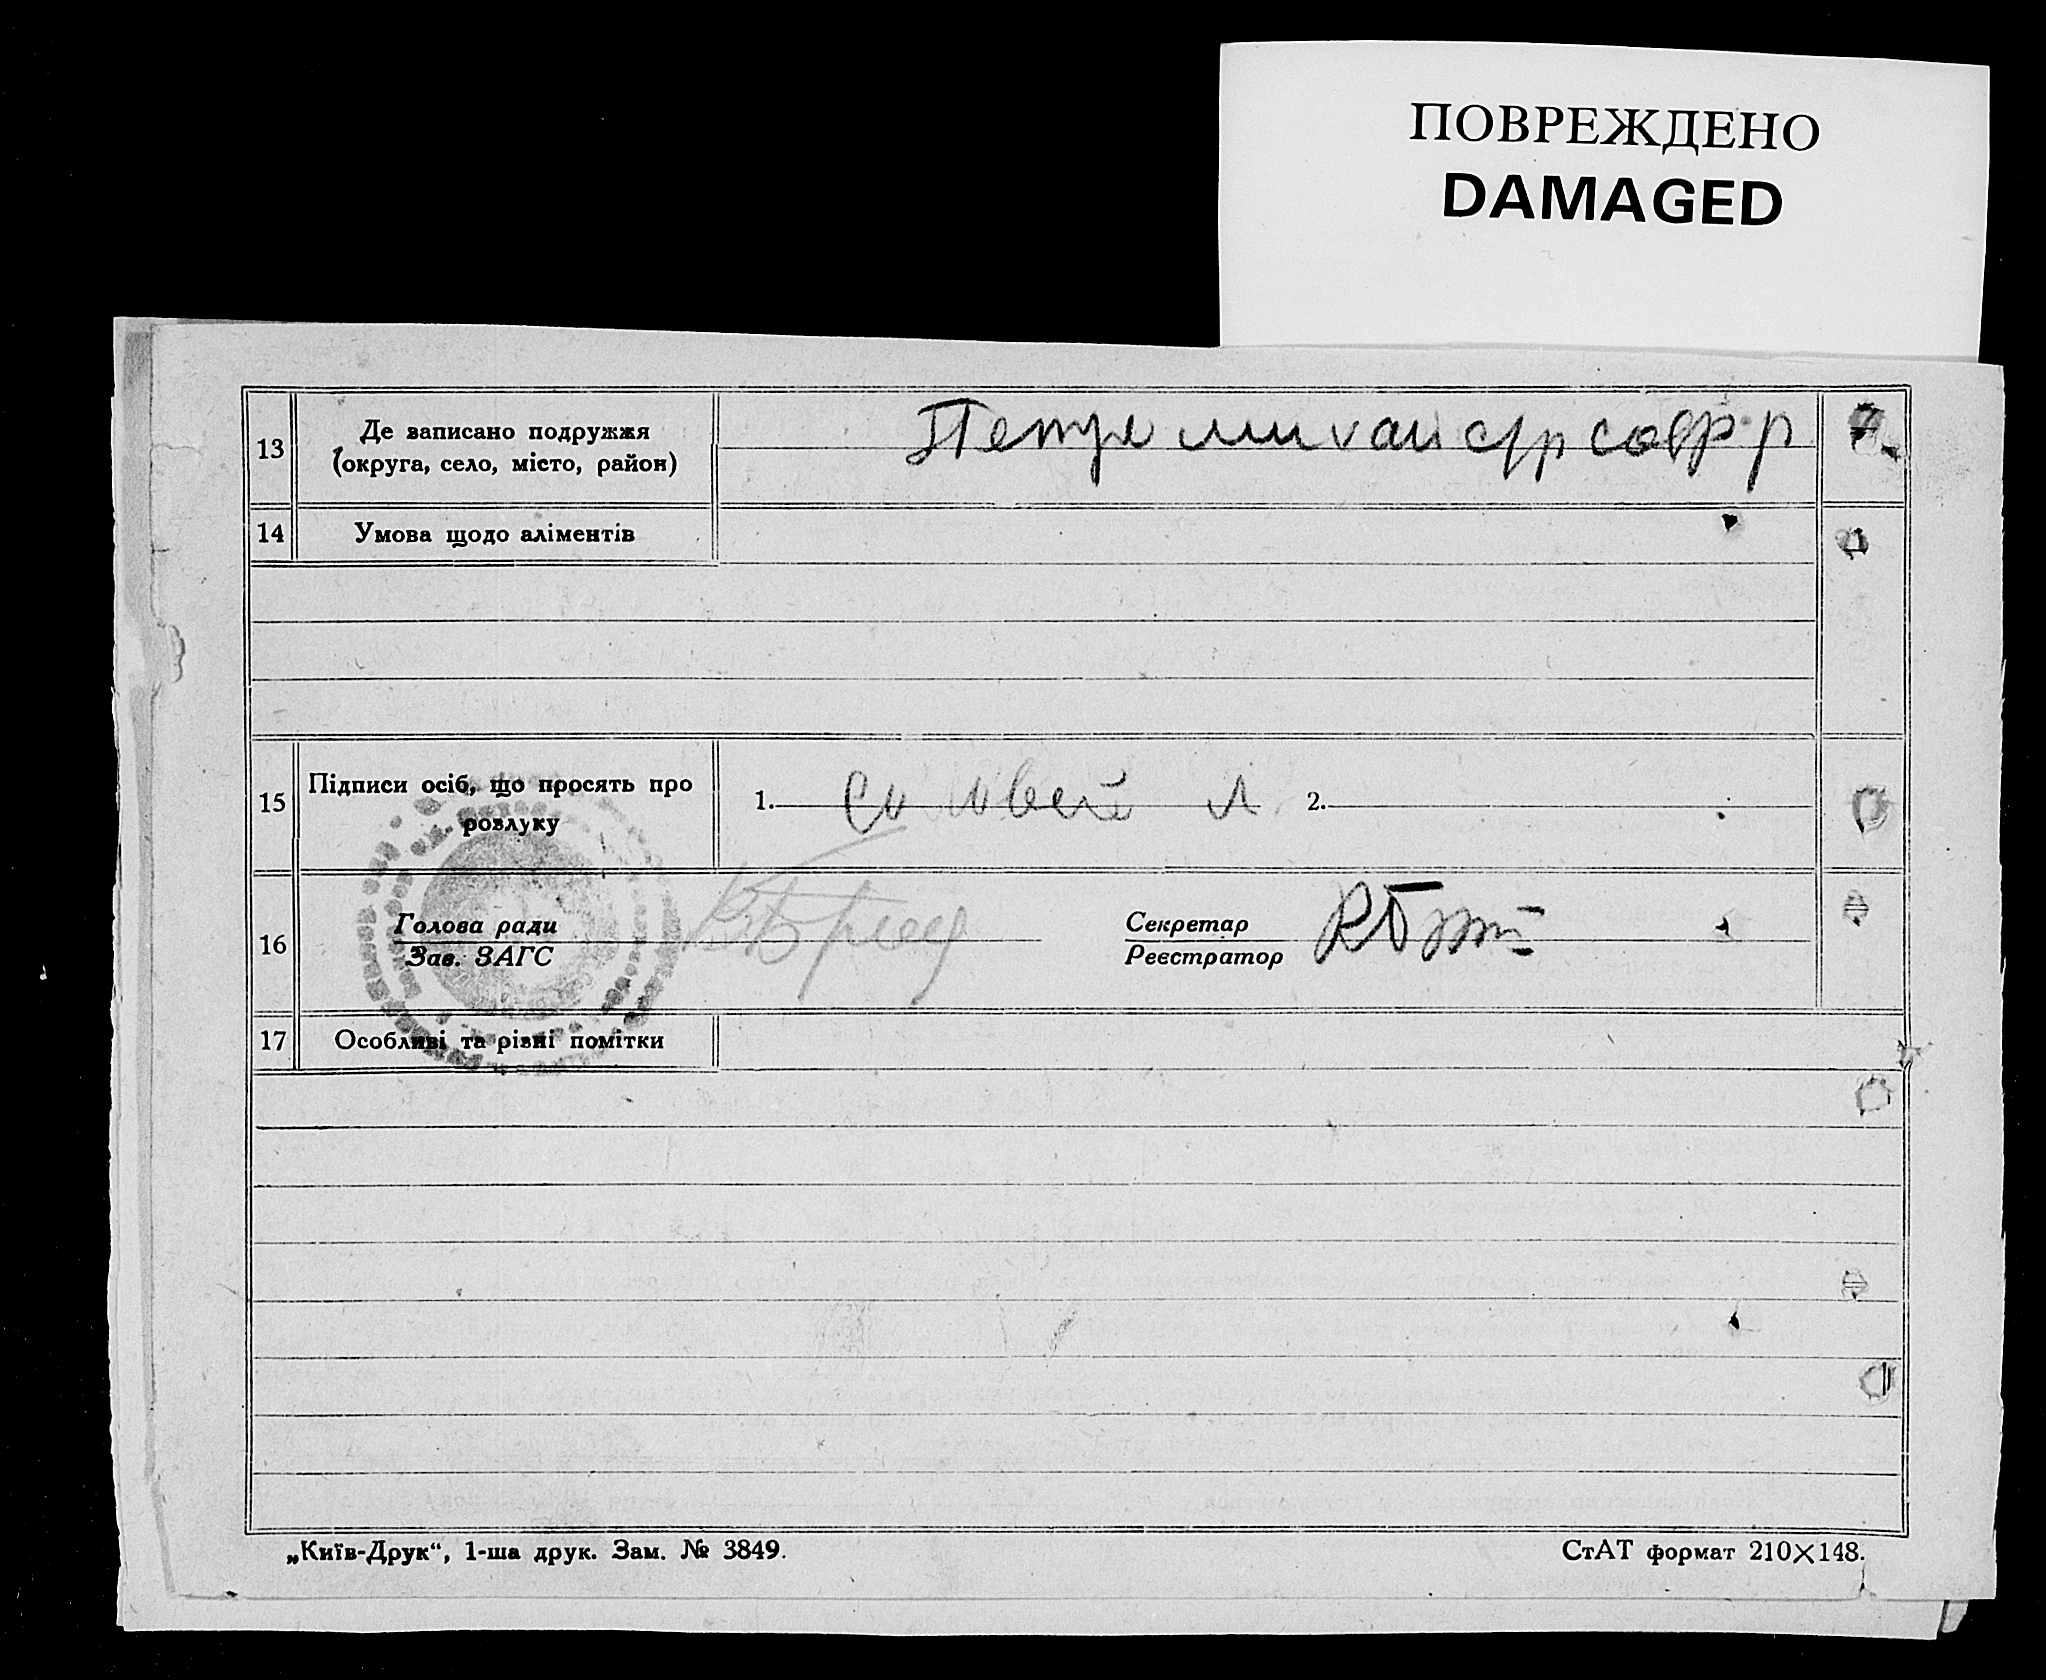 ПОВРЕЖДЕНО
DAMAGED
13
Де записано подружжя
(округа, село, місто, район)
14
Умова щодо аліментів
15
Підписи осіб, що просять про
розлуку
1.
Соловей Л
2.
16
Голова ради
Зав. ЗАГС
Секретар
Реєстратор
17
Особливі та різні помітки
„Київ-Друк“, 1-ша друк. Зам. № 3849.
СтАТ формат 210×148.